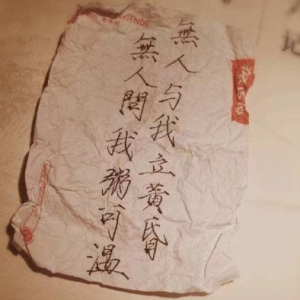 無人与我立黃昏
無人問我粥可溫